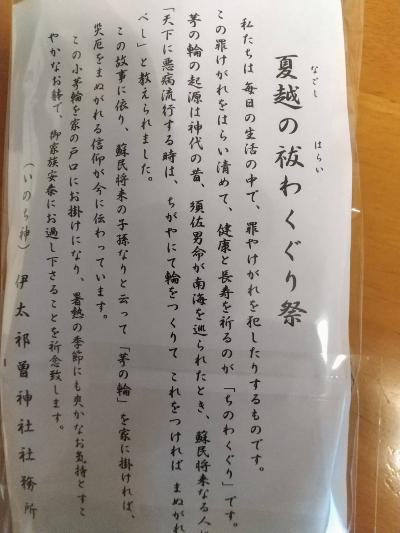 なごし はらい
夏越の祓わくぐり祭
私たちは毎日の生活の中で、罪やけがれを犯したりするものです。
この罪けがれをはらい清めて、健康と長寿を祈るのが、「ちのわくぐり」です。
茅の輪の起源は神代の昔、須佐男命が南海を巡られたとき、蘇民将来なる人に
「天下に悪病流行する時は、ちがやにて輪をつくりて これをつければ まぬがれ
べし」と教えられました。
この故事に依り、蘇民将来の子孫なりと云って「茅の輪」を家に掛ければ、
災厄をまぬがれる信仰が今に伝わっています。
この小茅輪を家の戸口にお掛けになり、暑熱の季節にも爽かなお気持とすこ
やかなお躰で、御家族安泰にお過し下さることを祈念致します。
(いのち神) 伊太祁曽神社社務所